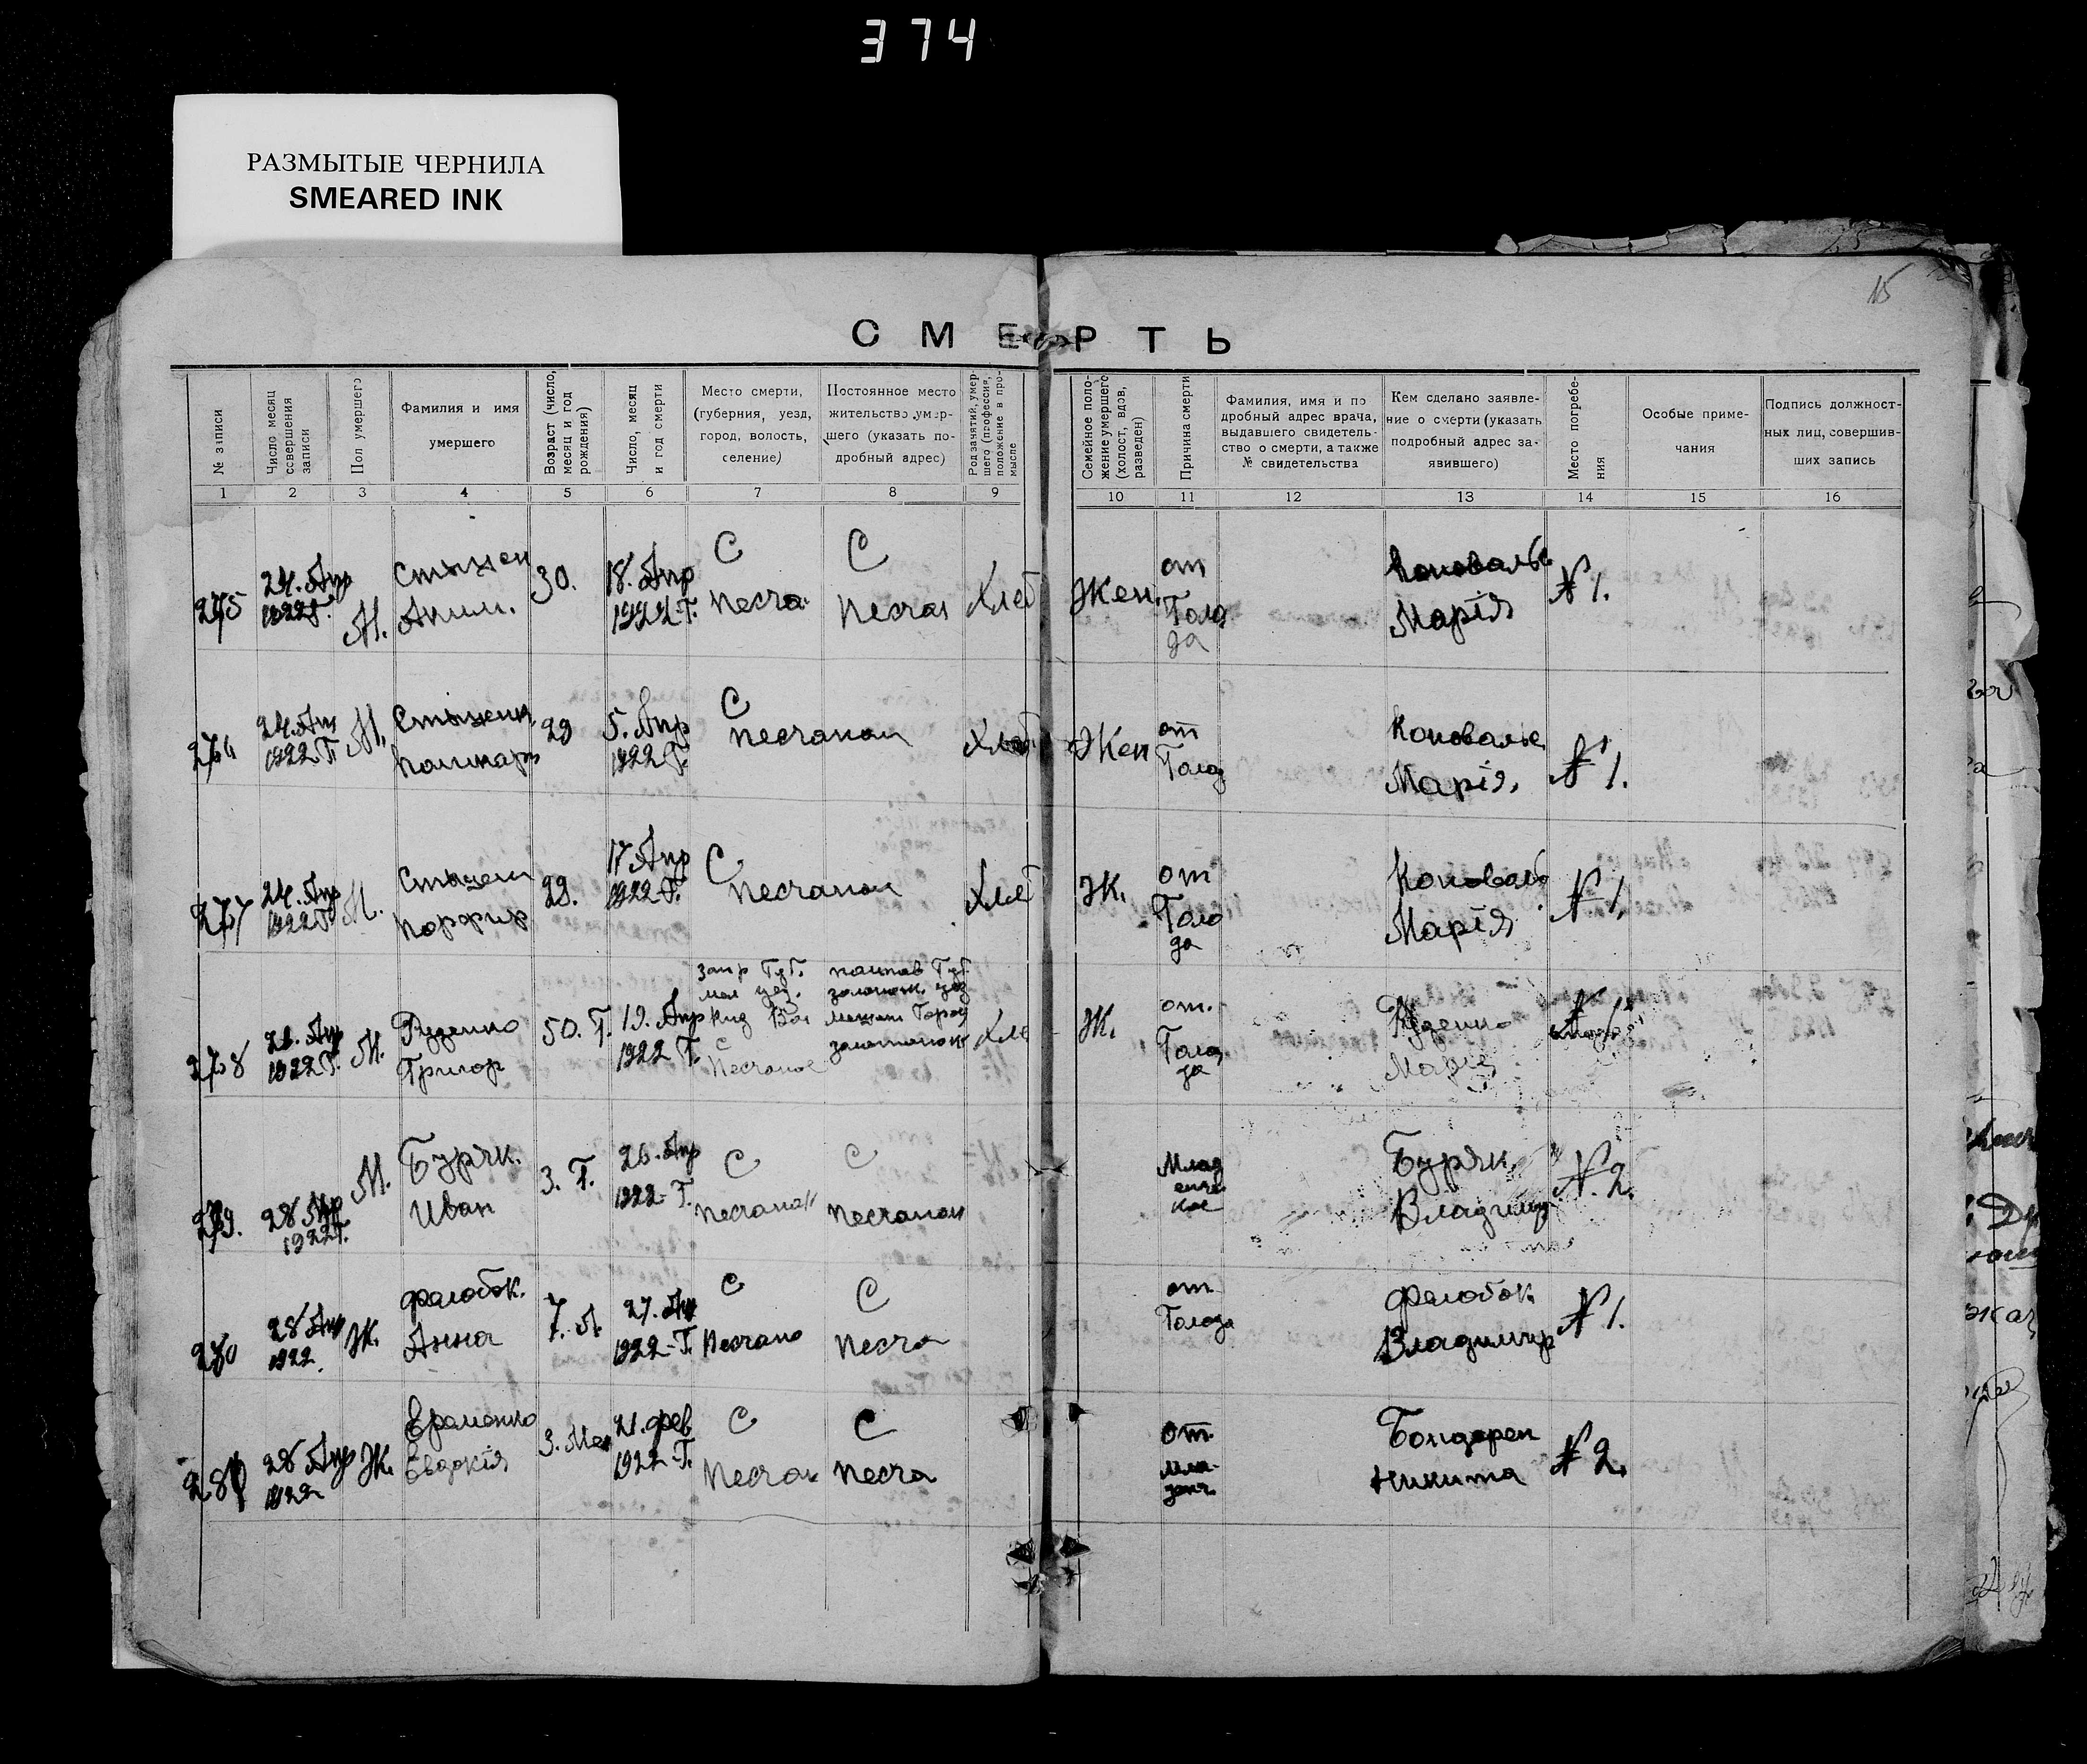 374
РАЗМЫТЫЕ ЧЕРНИЛА
SMEARED INK
15
СМЕРТЬ
№ записи
Число месяц совершения записи
Пол умершего
Фамилия и имя умершего
Возраст (число, месяц и год рождения)
Число, месяц и год смерти
Место смерти, (губерния, уезд, город, волость, селение)
Постоянное место жительство умершего (указать подробный адрес)
Род занятий, умершего (профессия, положение в промысле
Семейное положение умершего (холост, вдов, разведен)
Причина смерти
Фамилия, имя и подробный адрес врача, выдавшего свидетельство о смерти, а также № свидетельства
Кем сделано заявление о смерти (указать подробный адрес заявившего)
Место погребения
Особые примечания
Подпись должностных лиц, совершивших запись
1 2 3 4 5 6 7 8 9 10 11 12 13 14 15 16
275 24. Апр 1922 Г. М. 30. 18. Апр 1922 Г. С Песча С Песчан Хлеб Жен. от Голо да Коноваль Марія № 1.
24. Апр 1922 Г. М. 29 5. Апр 1922 Г. С Песчаном Хлеб Жен от Голод Коновале Марія, № 1.
277 24. Апр 1922 Г М. Порфир 29. 17 Апр 1922 Г. С Песчаном Хлеб Ж. от Голо да Коновал Марія № 1.
278 Апр 1922 Г. М. Руденко Григор 50. Г. 19. Апр 1922 Г. Губ. уез. С Песчаное Полтав Губ. золотон. уез Город золотонош Хле Ж. от. Голо да Марія № 1
279. 28 Апр 1922 Г. М. Буряк. Иван 3. Г. 26. Апр 1922 Г. С Песчаной С Песчаном Млад енче кое Буряк Владимир № 2.
280 28 Апр 1922. Ж. Фалобок. Анна 7. Л 27. Апр 1922 Г. С Песчано С Песча от Голода Фалобок Владимир № 1.
281 28 Апр 1922 Ж. Ераменко Евдокія 3. Мес 21. фев 1922 Г. С Песчан С Песча от. мла денч. Бондарен Никита № 2.